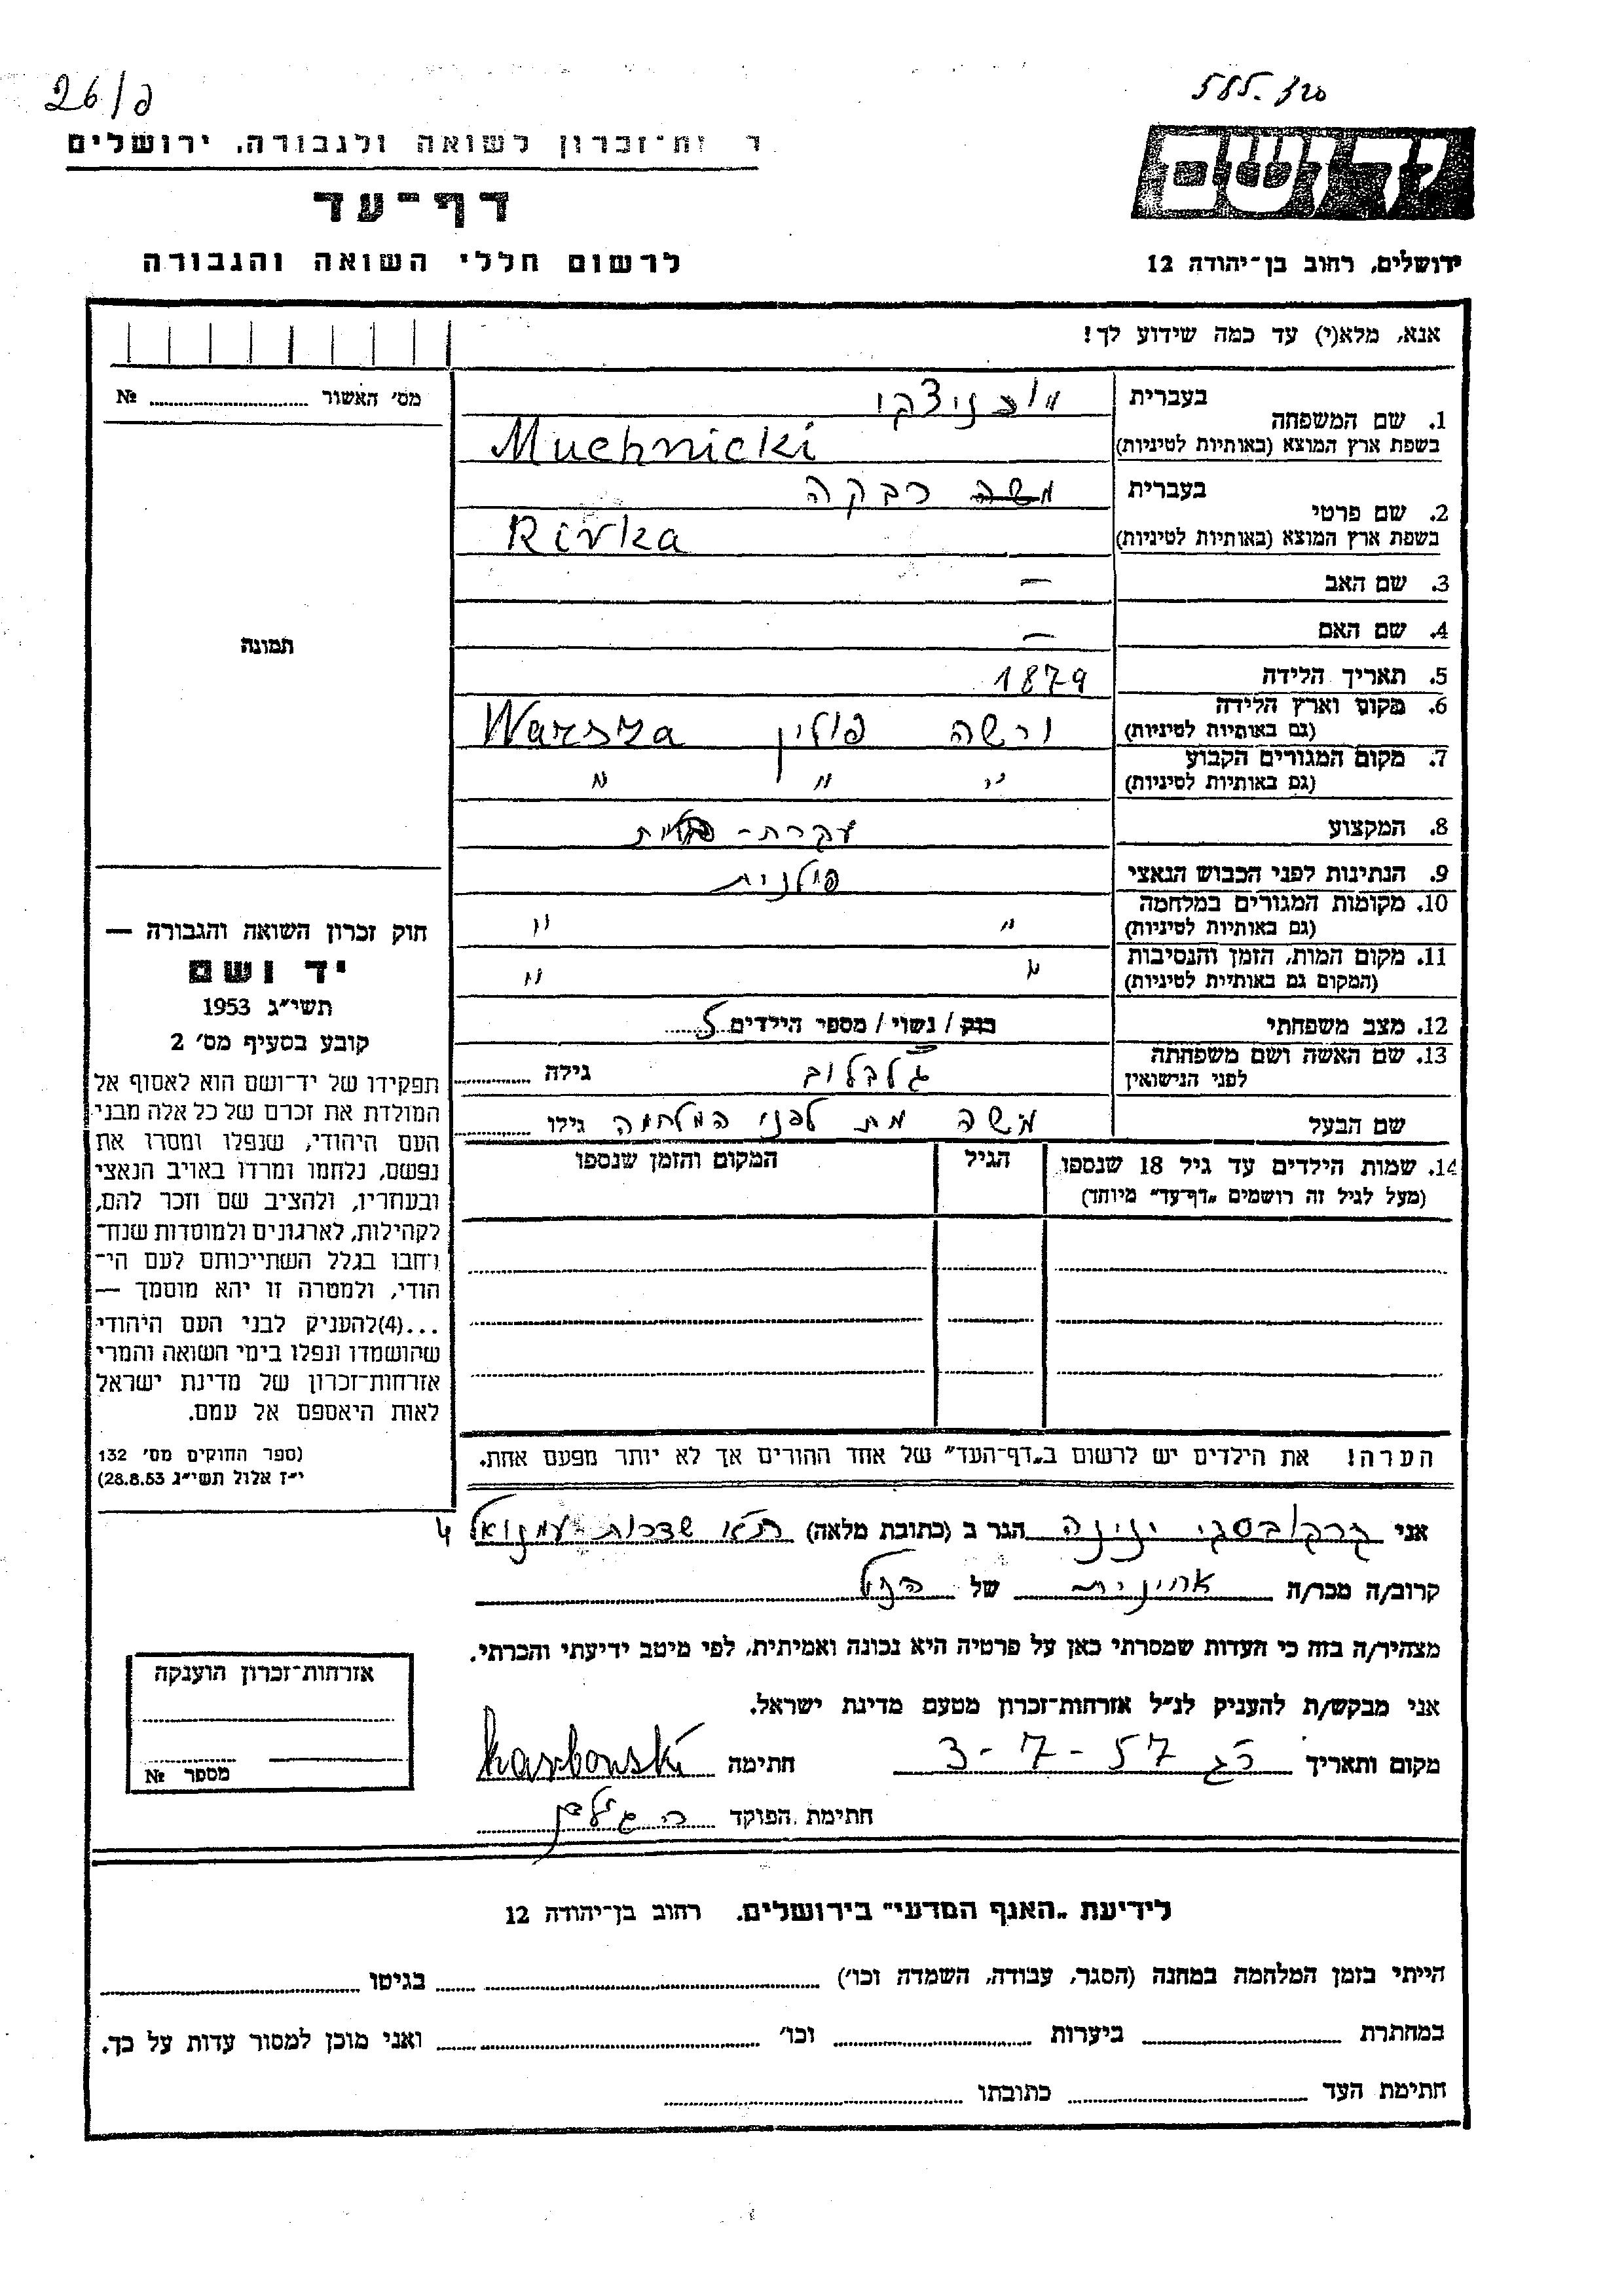 26/פ
585.320
ר זת־זכרון לשואה ולגבורה. ירושלים
דף־עד
לרשום חללי השואה והגבורה
יד ושם
ירושלים, רחוב בן־יהודה 12
אנא, מלא(י) עד כמה שידוע לך!
מס׳ האשור № 
בעברית
מוכניצקי
1. שם המשפחה
בשפת ארץ המוצא (באותיות לטיניות)
Muchnicki
בעברית
משה רבקה
2. שם פרטי
בשפת ארץ המוצא (באותיות לטיניות)
Rivka
3. שם האב —
4. שם האם —
תמונה
5. תאריך הלידה 1879
6. מקום וארץ הלידה
(גם באותיות לטיניות)
ורשה פולין Warsza
7. מקום המגורים הקבוע
(גם באותיות לטיניות)
" " "
8. המקצוע עקרת-בית
9. הנתינות לפני הכבוש הנאצי פולנית
10. מקומות המגורים במלחמה
(גם באותיות לטיניות)
" "
11. מקום המות, הזמן והנסיבות
(המקום גם באותיות לטיניות)
" "
12. מצב משפחתי רוק / נשוי / מספר הילדים 5
13. שם האשה ושם משפחתה
לפני הנישואין
גילה
שם הבעל משה מת לפני המלחמה גילו
14. שמות הילדים עד גיל 18 שנספו
(מעל לגיל זה רושמים „דף־עד” מיוחד)
הגיל
המקום והזמן שנספו
חוק זכרון השואה והגבורה —
יד ושם
תשי״ג 1953
קובע בסעיף מס׳ 2
תפקידו של יד־ושם הוא לאסוף אל
המולדת את זכרם של כל אלה מבני
העם היהודי, שנפלו ומסרו את
נפשם, נלחמו ומרדו באויב הנאצי
ובעוזריו, ולהציב שם וזכר להם,
לקהילות, לארגונים ולמוסדות שנח־
רחבו בגלל השתייכותם לעם הי־
הודי, ולמטרה זו יהא מוסמך —
...(4)להעניק לבני העם היהודי
שהושמדו ונפלו בימי השואה והמרי
אזרחות־זכרון של מדינת ישראל
לאות היאספם אל עמם.
(ספר החוקים מס׳ 132
י״ז אלול תשי״ג 28.8.53)
הערה! את הילדים יש לרשום ב„דף־העד” של אחד ההורים אך לא יותר מפעם אחת.
אני קרקובסקי ינינה הגר ב (כתובת מלאה) ת״א שדרות עמנואל 4
קרוב/ה מכר/ה אחינית של הנ״ל
מצהיר/ה בזה כי העדות שמסרתי כאן על פרטיה היא נכונה ואמיתית, לפי מיטב ידיעתי והכרתי.
אני מבקש/ת להעניק לנ״ל אזרחות־זכרון מטעם מדינת ישראל.
מקום ותאריך רג 3-7-57 חתימה
חתימת הפוקד
אזרחות־זכרון הוענקה
מספר №
לידיעת „האגף המדעי” בירושלים. רחוב בן־יהודה 12
הייתי בזמן המלחמה במחנה (הסגר, עבודה, השמדה וכו׳) בגיטו
במחתרת ביערות וכו׳ ואני מוכן למסור עדות על כך.
חתימת העד כתובתו